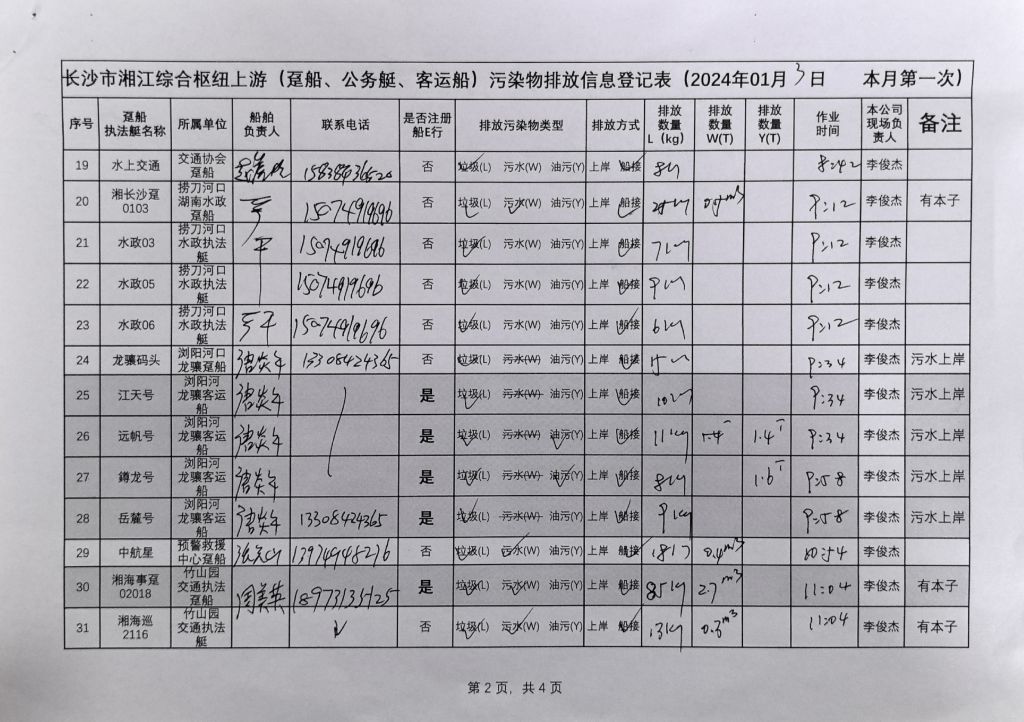 长沙市湘江综合枢纽上游（趸船、公务艇、客运船）污染物排放信息登记表（2024年01月3日 本月第一次）
序号 趸船执法艇名称 所属单位 船舶负责人 联系电话 是否注册船E行 排放污染物类型 排放方式 排放数量L（kg） 排放数量W(T) 排放数量Y(T) 作业时间 本公司现场负责人 备注
19 水上交通 交通协会趸船 否 垃圾(L) 污水(W) 油污(Y) 上岸 船接 8kg 8:42 李俊杰
20 湘长沙趸0103 捞刀河口湖南水政趸船 15074919696 否 垃圾(L) 污水(W) 油污(Y) 上岸 船接 9:12 李俊杰 有本子
21 水政03 捞刀河口水政执法艇 15074919696 否 垃圾(L) 污水(W) 油污(Y) 上岸 船接 7kg 9:12 李俊杰
22 水政05 捞刀河口水政执法艇 15074919696 否 垃圾(L) 污水(W) 油污(Y) 上岸 船接 9kg 9:12 李俊杰
23 水政06 捞刀河口水政执法艇 15074919696 否 垃圾(L) 污水(W) 油污(Y) 上岸 船接 6kg 9:12 李俊杰
24 龙骧码头 浏阳河口龙骧趸船 13308424365 否 垃圾(L) 污水(W) 油污(Y) 上岸 船接 15kg 9:34 李俊杰 污水上岸
25 江天号 浏阳河龙骧客运船 是 垃圾(L) 污水(W) 油污(Y) 上岸 船接 10kg 9:34 李俊杰 污水上岸
26 远帆号 浏阳河龙骧客运船 是 垃圾(L) 污水(W) 油污(Y) 上岸 船接 11kg 1.4T 9:34 李俊杰 污水上岸
27 鐏龙号 浏阳河龙骧客运船 是 垃圾(L) 污水(W) 油污(Y) 上岸 船接 8kg 1.6T 9:58 李俊杰 污水上岸
28 岳麓号 浏阳河龙骧客运船 13308424365 是 垃圾(L) 污水(W) 油污(Y) 上岸 船接 9kg 9:58 李俊杰 污水上岸
29 中航星 预警救援中心趸船 13974948276 否 垃圾(L) 污水(W) 油污(Y) 上岸 船接 0.4m³ 10:54 李俊杰
30 湘海事趸02018 竹山园交通执法趸船 周美英 18973135125 是 垃圾(L) 污水(W) 油污(Y) 上岸 船接 85kg 2.7m³ 11:04 李俊杰 有本子
31 湘海巡2116 竹山园交通执法艇 否 垃圾(L) 污水(W) 油污(Y) 上岸 船接 13kg 0.3m³ 11:04 李俊杰 有本子
第 2 页，共 4 页